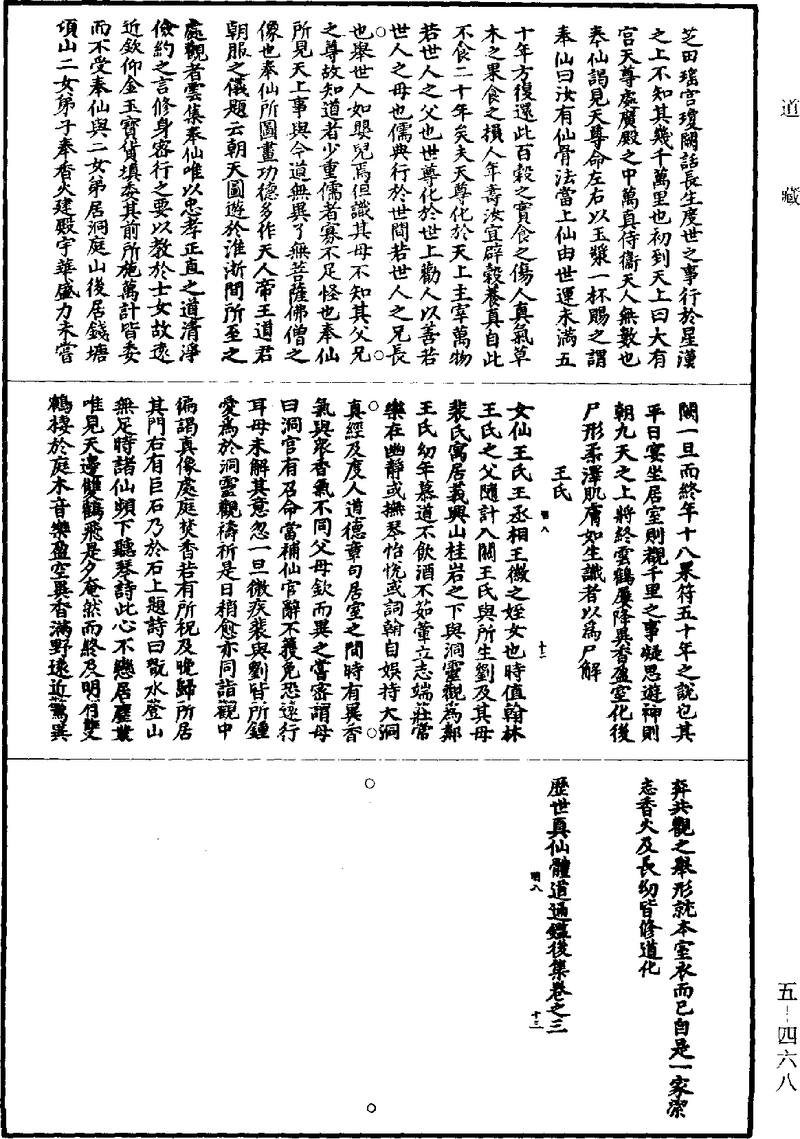 道藏
芝田瑤宮瓊闕話長生度世之事行於星漢
之上不知其幾千萬里也初到天上曰大有
宮天尊處廣殿之中萬真侍衞天人無數也
奉仙謁見天尊命左右以玉漿一杯賜之謂
奉仙曰汝有仙骨法當上仙由世運未滿五
十年方復還此百穀之實食之傷人真氣草
木之果食之損人年壽汝宜辟穀養真自此
不食二十年矣夫天尊化於天上主宰萬物
若世人之父也世尊化於世上勸人以善若
世人之母也儒典行於世間若世人之兄長
也舉世人如嬰兒焉但識其母不知其父兄
之尊故知道者少重儒者寡不足怪也奉仙
所見天上事與今道無異了無菩薩佛僧之
像也奉仙所圖畫功德多作天人帝王道君
朝服之儀題云朝天圖遊於淮浙間所至之
處觀者雲集奉仙唯以忠孝正直之道清淨
儉約之言修身密行之要以教於士女故遠
近欽仰金玉寶貨填委其前所施萬計皆委
而不受奉仙與二女弟居洞庭山後居錢塘
頊山二女弟子奉香火建殿宇華盛力未嘗
闕一旦而終年十八果符五十年之說也其
平日宴坐居室則觀千里之事凝思遊神則
朝九天之上將終雲鶴屢降異香盈室化後
尸形柔澤肌膚如生識者以為尸解
王氏
女仙王氏王丞相王徽之姪女也時值翰林
王氏之父隨計入關王氏與所生劉及其母
裴氏寓居義興山桂岩之下與洞靈觀為鄰
王氏幼年慕道不飲酒不茹葷立志端莊常
樂在幽靜或撫琴怡悅或詞翰自娛持大洞
真經及度人道德章句居室之間時有異香
氣與眾香氣不同父母欽而異之嘗密謂母
曰洞宮有召命當補仙官辭不獲免恐遠行
耳母未解其意忽一旦微疾裴與劉皆所鍾
愛為於洞靈觀禱祈是日稍愈亦同詣觀中
徧謁真像處庭焚香若有所祝及晚歸所居
其門右有巨石乃於石上題詩曰翫水登山
無足時諸仙頻下聽琴詩此心不戀居塵業
唯見天邊雙鶴飛是夕奄然而終及明有雙
鶴棲於庭木音樂盈空異香滿野遠近驚異
奔共觀之舉形就木室衣而已自是一家潔
志香火及長幼皆修道化
歷世真仙體道通鑑後集卷之三
五-四六八